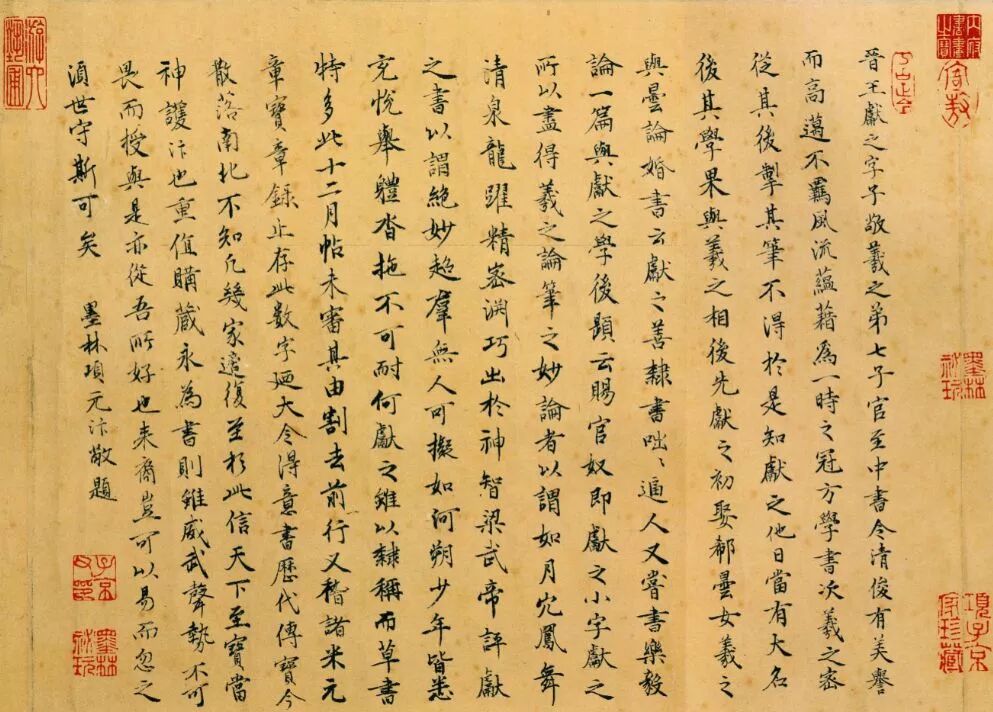 晉王獻之字子敬羲之弟七子官至中書令清俊有美譽
而高邁不羈風流蘊藉為一時之冠方學書次羲之密
從其後掣其筆不得於是知獻之他日當有大名
後其學果與羲之相後先獻之初娶郗曇女羲之
與曇論婚書云獻之善隸書咄咄逼人又嘗書樂毅
論一篇與獻之學後題云賜官奴即獻之小字獻之
所以盡得羲之論筆之妙論者以謂如月穴鳳舞
清泉龍躍精密淵巧出於神智梁武帝評獻
之書以謂絕妙超群無人可擬如河朔少年皆悉
充悅舉體沓拖不可耐何獻之雖以隸稱而草書
特多此十二月帖未審其由割去前行又稽諸米元
章寶章錄止存此數字廼大令得意書歷代傳寶今
散落南北不知凡幾家適復至於此信天下至寶當
神護汴也重值購藏永為書則雖威武聲勢不可
畏而授與是亦從吾所好也来裔豈可以易而忽之
須世守斯可矣 墨林項元汴敬題
內府書畫之寶
項子京家珍藏
墨林秘玩
子京父印
墨林秘玩